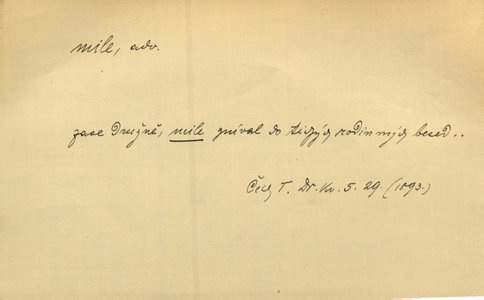 mile, adv.
zase družně, mile zníval do tichých rodinných besed..
Čech T. Dr. Kv. 5. 29. (1893.)